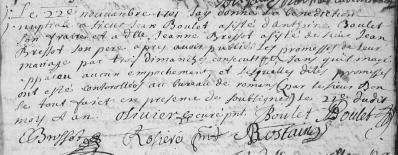 Le 22e novembre 1703 j'ay donné la benediction
nuptiale a sieur Jean Boulet assisté d'Antoine Boulet
son frere et a dlle Jeanne Bressot assisté de sieur Jean
Bressot son pere apres avoir publié les promesses de leur
mariage par trois dimanches consecutifs sans qu'il m'aye
apparu aucun empechement et lesquelles dites promesses
ont esté controllées au bureau de romans par le sieur
le tout fait en presence des soubsignes le 22e dudit
mois et an. Olivier curé pnt Boulet Boulet
Bressot Rosiere pnt Rostaing